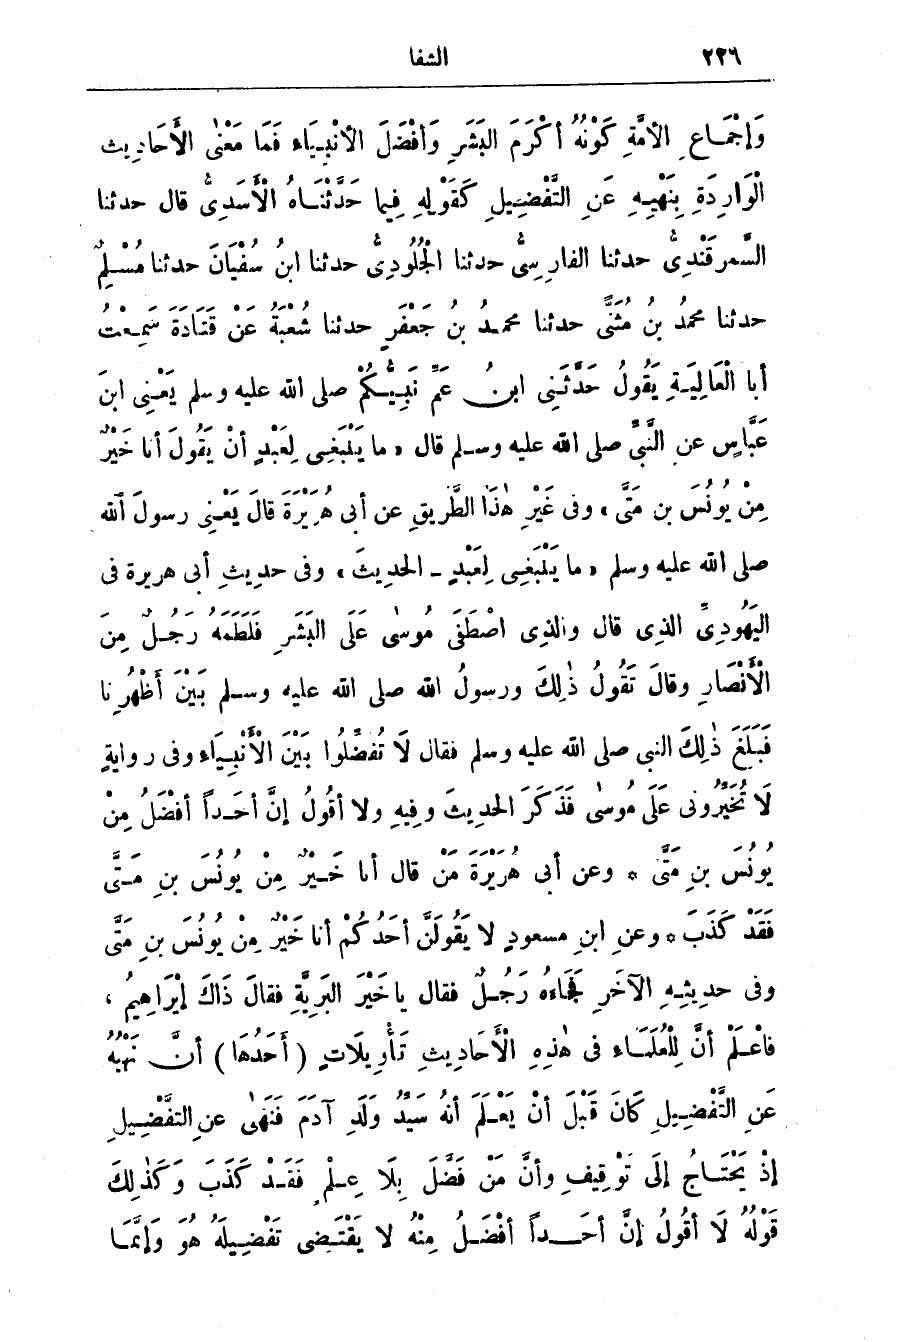 ٢٢٦ الشفا
وَإِجْمَاعِ الأُمَّةِ كَوْنُهُ أَكْرَمَ البَشَرِ وَأَفْضَلَ الأَنْبِيَاءِ فَمَا مَعْنَى الأَحَادِيثِ
الْوَارِدَةِ بِنَهْيِهِ عَنِ التَّفْضِيلِ كَقَوْلِهِ فِيما حَدَّثْنَاهُ الْأَسَدِىُّ قال حدثنا
السَّمرقَنْدِىُّ حدثنا الفارسِىُّ حدثنا الجُلُودِىُّ حدثنا ابنُ سُفْيَانَ حدثنا مُسْلِمٌ
حدثنا محمدُ بنُ مُثَنَّى حدثنا محمدُ بنُ جَعْفَرٍ حدثنا شُعْبَةُ عَنْ قَتَادَةَ سَمِعْتُ
أبا الْعَالِيَةِ يَقُولُ حَدَّثَنِى ابنُ عَمِّ نَبِيِّكُمْ صلى الله عليه وسلم يَعْنِى ابنَ
عَبَّاسٍ عن النَّبِىِّ صلى الله عليه وسلم قال «ما يَنْبَغِى لِعَبْدٍ أنْ يَقُولَ أنا خَيْرٌ
مِنْ يُونُسَ بن مَتَّى» وفى غَيْرِ هٰذَا الطَّرِيقِ عن أبى هُرَيْرَةَ قالَ يَعْنِى رسولَ اللهِ
صلى الله عليه وسلم «ما يَنْبَغِى لِعَبْدٍ ــ الحديثَ» وفى حديثِ أبى هريرة فى
اليَهُودِىِّ الذِى قال والذِى اصْطَفَى مُوسٰى عَلَى البَشَرِ فَلَطَمَهُ رَجُلٌ مِنَ
الْأَنْصَارِ وقالَ تَقُولُ ذٰلِكَ ورسولُ الله صلى الله عليه وسلم بَيْنَ أَظْهُرِنا
فَبَلَغَ ذٰلِكَ النبى صلى الله عليه وسلم فقال لَا تُفضِّلُوا بَيْنَ الْأَنْبِيَاءِ وفى روايةٍ
لَا تُخَيِّرُونى عَلَى مُوسٰى فَذَكَرَ الحديثَ وفِيهِ ولا أقُولُ إنَّ أحَداً أفْضَلُ مِنْ
يُونُسَ بنِ مَتَّى * وعن أبى هُرَيْرَةَ مَنْ قال أنا خَيْرٌ مِنْ يُونُسَ بنِ مَتَّى
فَقَدْ كَذَبَ * وعنِ ابنِ مسعودٍ لا يَقُولَنَّ أحَدُكُمْ أنا خَيْرٌ مِنْ يُونُسَ بنِ مَتَّى
وفى حديثِهِ الآخَرِ فَجَاءهُ رَجُلٌ فقال ياخَيْرَ البَرِيَّةِ فقالَ ذَاكَ إبْرَاهِيمُ،
فاعْلَمْ أنَّ لِلْعُلَمَاء فى هٰذِهِ الْأَحَادِيثِ تَأْوِيلَاتٍ (أَحَدُهَا) أنَّ نَهْيَهُ
عَنِ التَّفْضِيلِ كَانَ قَبْلَ أنْ يَعْلَمَ أنهُ سَيِّدُ وَلَدِ آدَمَ فَنَهٰى عنِ التفْضِيلِ
إذْ يَحْتَاجُ إلَى تَوْقِيفٍ وأنَّ مَنْ فَضَّلَ بِلَا عِلْمٍ فَقَدْ كَذَبَ وَكَذٰلِكَ
قَوْلُهُ لَا أقُولُ إنَّ أحَداً أفْضَلُ مِنْهُ لا يَقْتَضِى تَفْضِيلَهُ هُوَ وَإنَّمَا